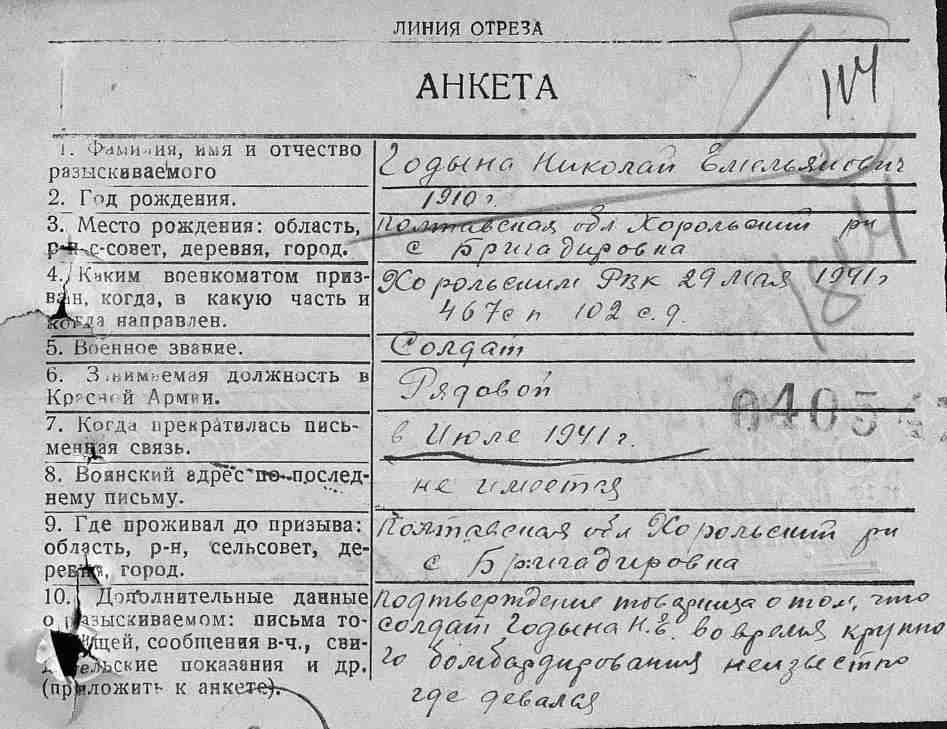 ЛИНИЯ ОТРЕЗА
АНКЕТА
1. Фамилия, имя и отчество
разыскиваемого
Годына Николай Емельянович
2. Год рождения.
1910 г.
3. Место рождения: область,
р-н с-совет, деревня, город.
Полтавская обл Хорольский рн
с Бригадировка
4. Каким военкоматом приз-
ван, когда, в какую часть и
когда направлен.
Хорольским РВК 29 мая 1941 г
467 с п 102 с. д.
5. Военное звание.
Солдат
6. Занимаемая должность в
Красной Армии.
Рядовой
7. Когда прекратилась пись-
менная связь.
в Июле 1941 г.
8. Воинский адрес по послед-
нему письму.
не имеется
9. Где проживал до призыва:
область, р-н, сельсовет, де-
ревня, город.
Полтавская обл Хорольский рн
с Бригадировка
10. Дополнительные данные
о разыскиваемом: письма то-
щей, сообщения в-ч., сви-
тельские показания и др.
(приложить к анкете).
подтверждение товарища о том, что
солдат Годына Н.Е. во время крупно
го бомбардирования неизвестно
где девался
0405